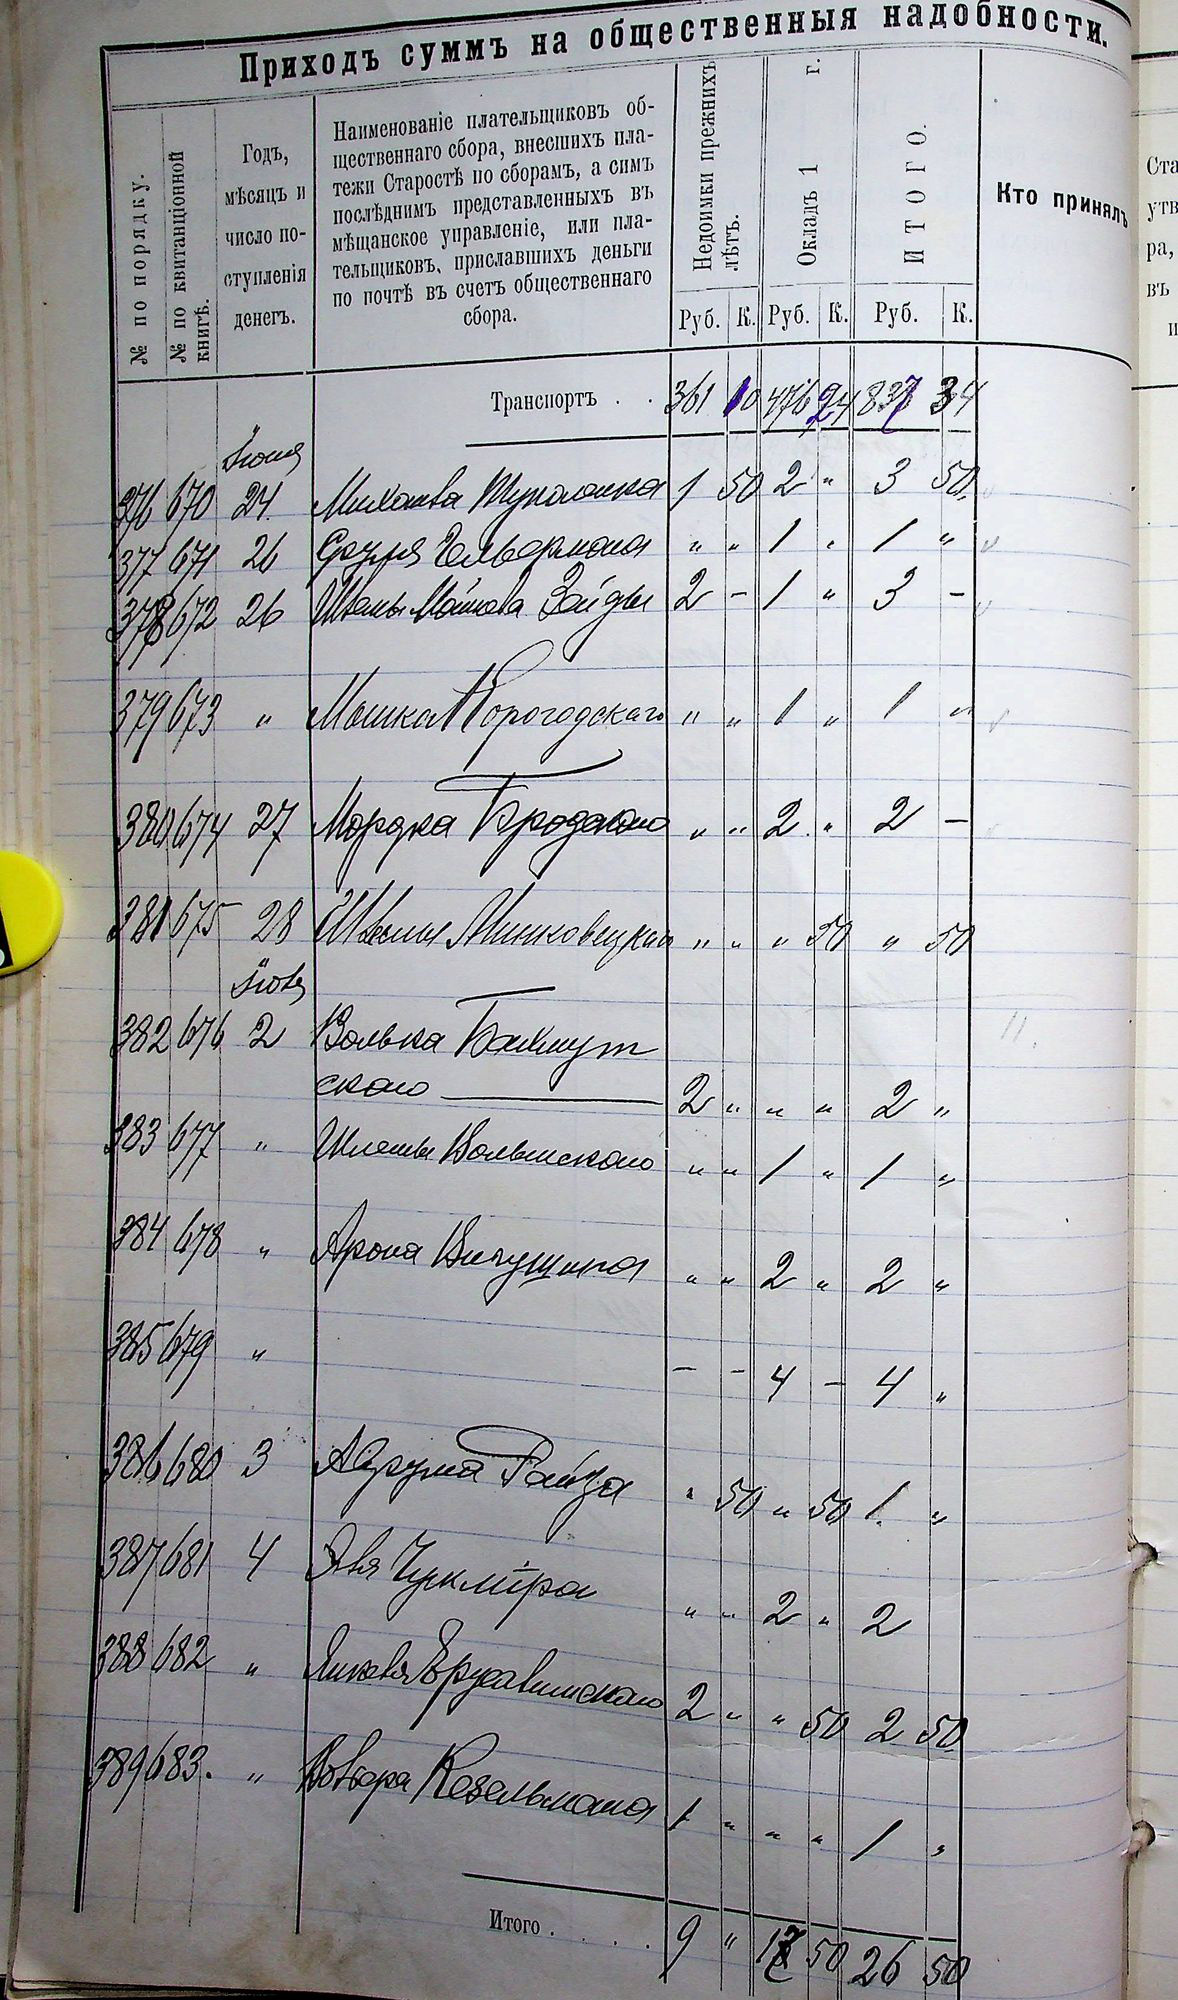 Приходъ суммъ на общественныя надобности.
№ по порядку.
№ по квитанціонной книгѣ.
Годъ,
мѣсяцъ и
число по-
ступленія
денегъ.
Наименованіе плательщиковъ об-
щественнаго сбора, внесшихъ пла-
тежи Старостѣ по сборамъ, а симъ
послѣднимъ представленныхъ въ
мѣщанское управленіе, или пла-
тельщиковъ, приславшихъ деньги
по почтѣ въ счетъ общественнаго
сбора.
Недоимки прежнихъ лѣтъ.
Окладъ 1 г.
ИТОГО.
Кто принялъ
Руб. К. Руб. К. Руб. К.
Транспортъ . . 361 10 476 24 837 34
Іюня
376 670 24 1 50 2 " 3 50
377 671 26 " " 1 " 1 "
378 672 26 2 - 1 " 3 -
379 673 " Мошка " " 1 " 1 "
380 674 27 Мордка Бродского " " 2 " 2 -
381 675 28 Минковецкаго " " " 50 " 50
Іюля
382 676 2 Волька Бахмут
ского 2 " " " 2 "
383 677 " Шлемы Волынского " " 1 " 1 "
384 678 " Арона " " 2 " 2 "
385 679 " - - 4 - 4 "
386 680 3 " 50 " 50 1 "
387 681 4 " " 2 " 2
388 682 " 2 " " 50 2 50
389 683. " Козельмана 1 " " " 1 "
Итого . . . . 9 " 17 50 26 50
Ста
утв
ра,
въ
и